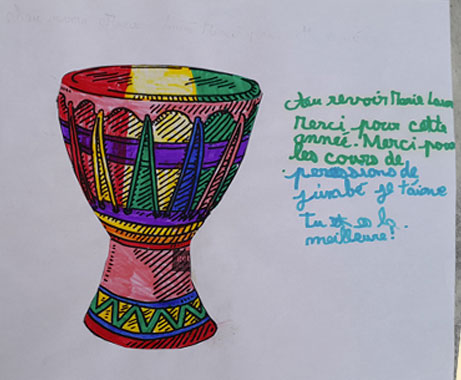 Au revoir Marie Laure
Merci pour cette
année. Merci pour
les cours de
percussions de
je t'aime
Tu es la
meilleure!